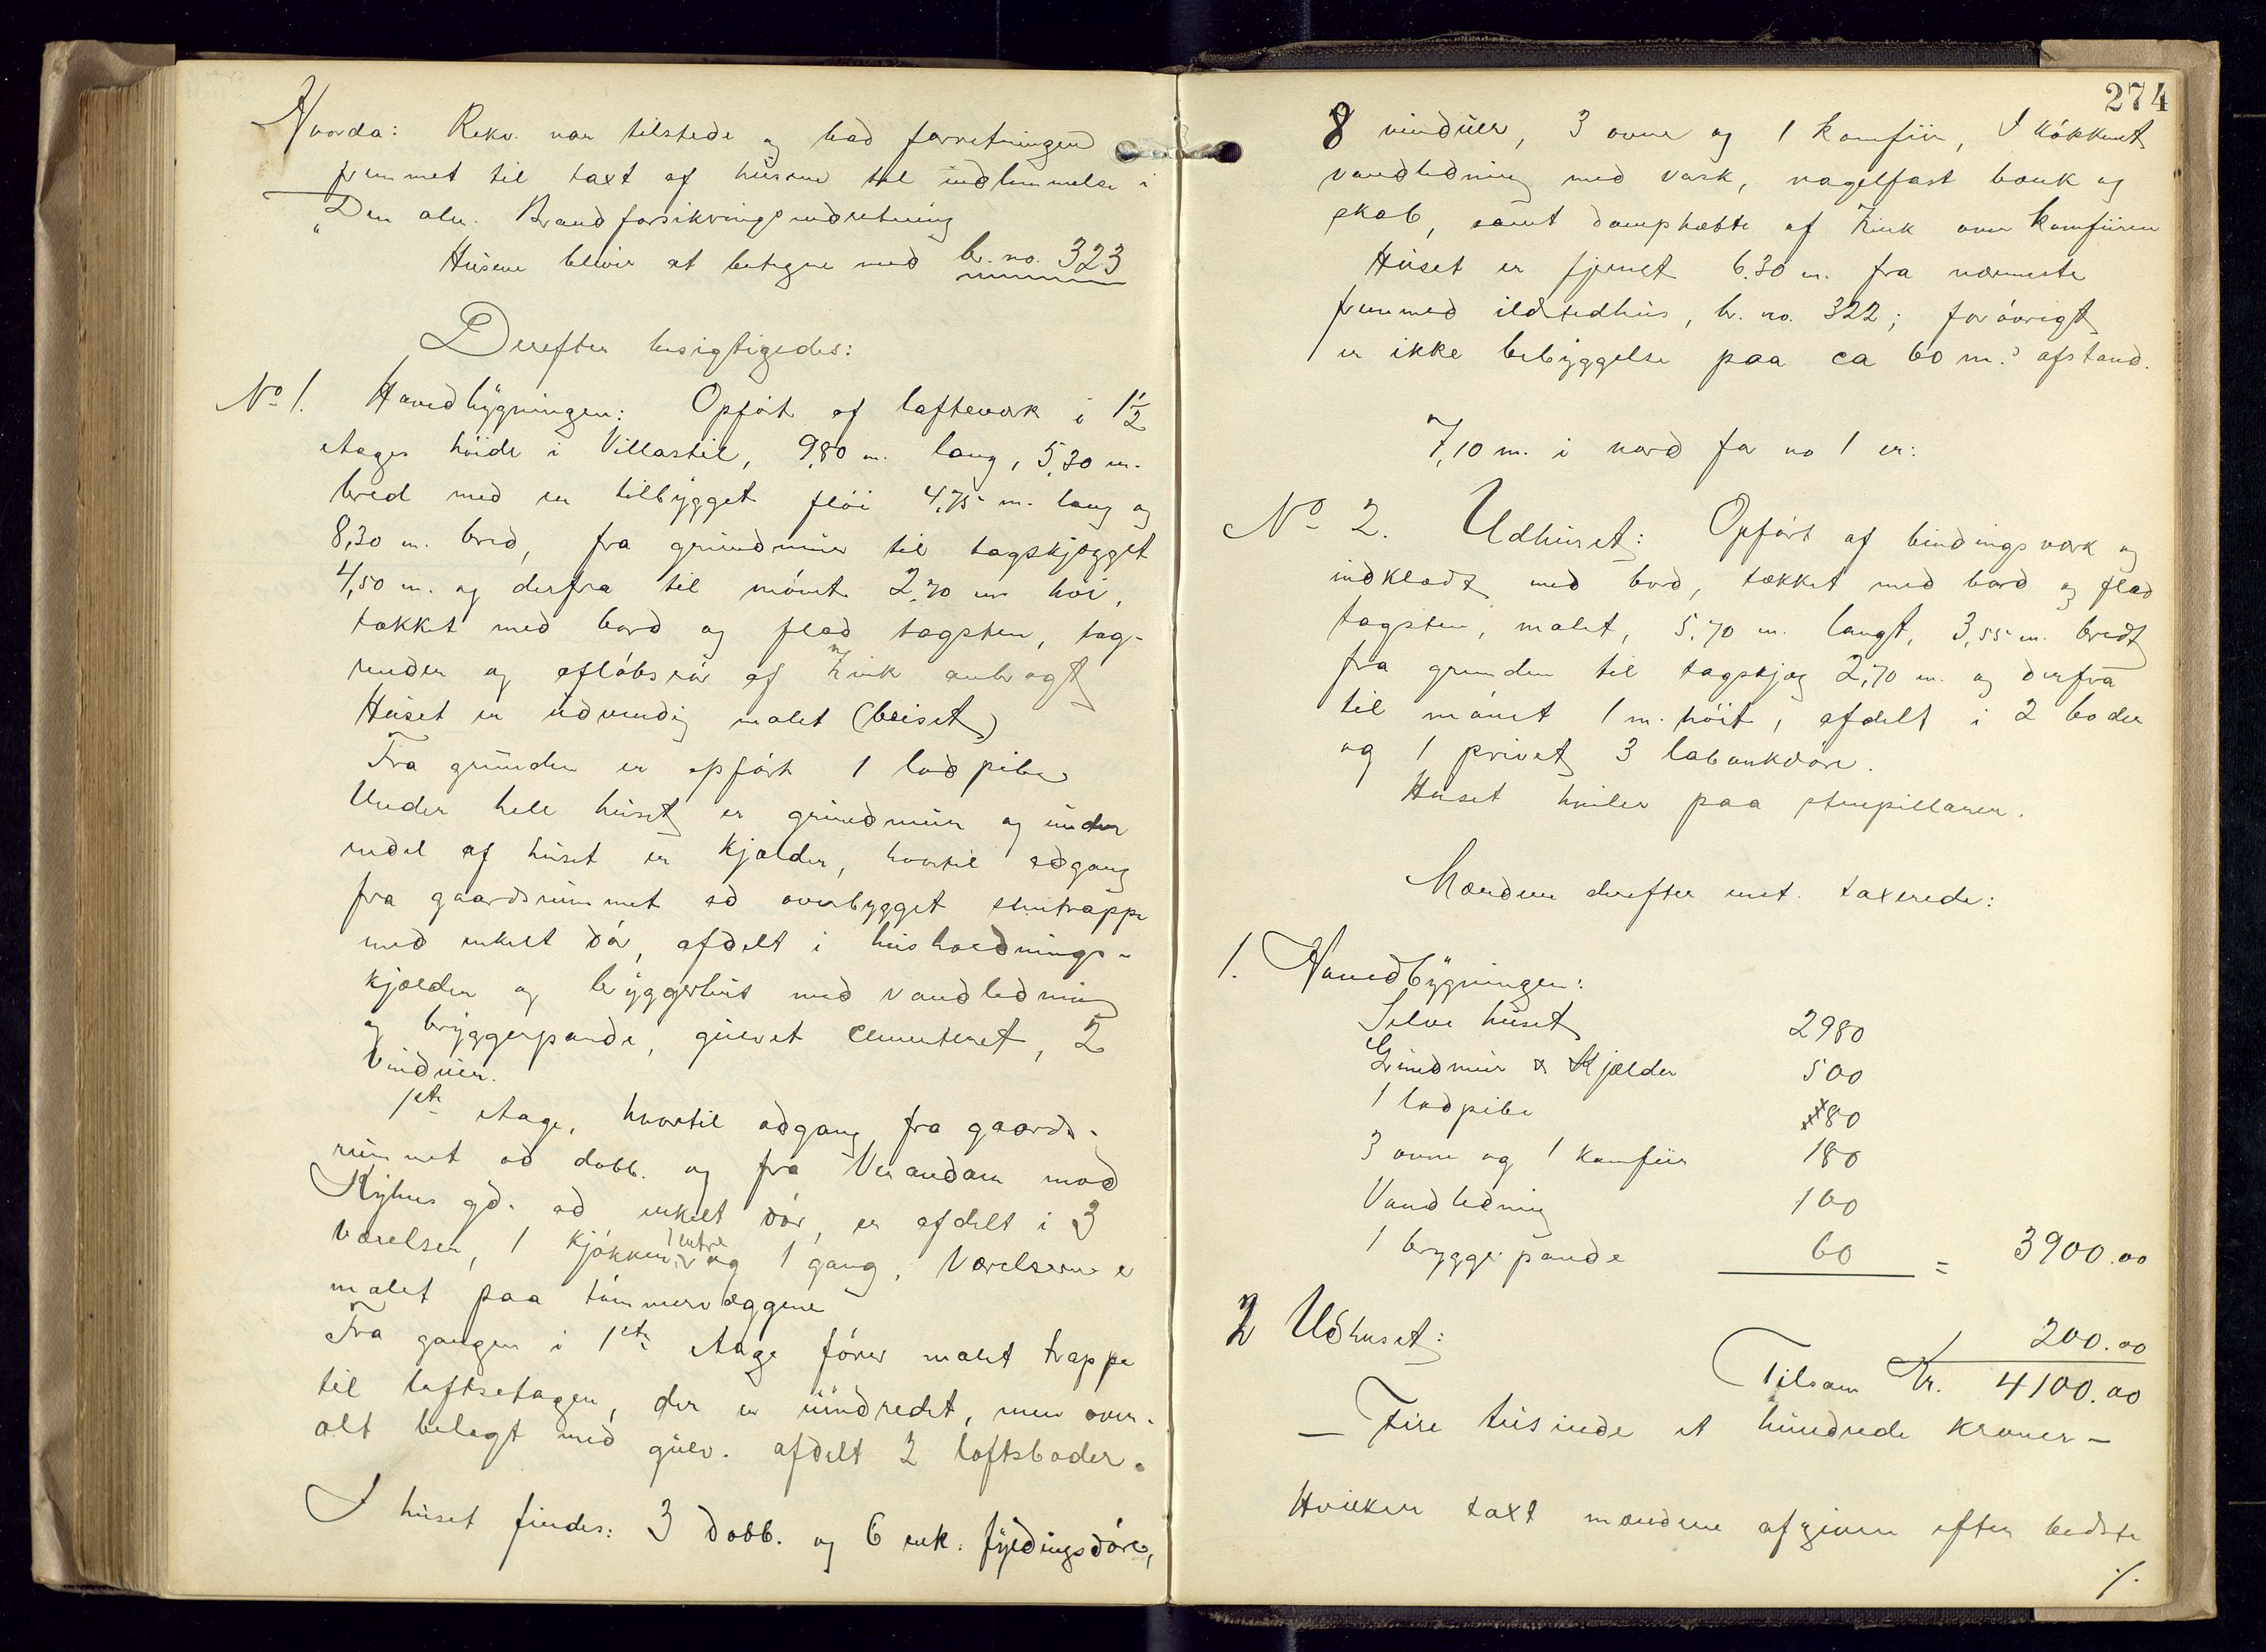 Hvorda: Rekv. var tilstede og bad forretningen
fremmet til taxt af husene til indlemmelse i
"Den alm. Brandforsikringsindretning
Husene bliver at betegne med b. no. 323
Derefter besigtigedes:
No 1. Hovedbygningen: Opført af lafteverk i 1 1/2
etages høide i Villastil, 9,80 m. lang, 5,30 m.
bred med en tilbygget fløi 4,75 m. lang og
8,30 m. bred, fra grundmur til tagskjægget
4,50 m. og derfra til mønet 2,70 m høi,
tækket med bord og flad tagsten, tag-
render og afløbsrør af Zink anbragt
Huset er udvendig malet (beiset)
Fra grunden er opført 1 lodpibe
Under hele huset er grundmur og under
endel af huset er kjælder, hvortil adgang
fra gaardsrummet ad overbygget stentrappe
med enkelt dør, afdelt i husholdnings-
kjælder og bryggerhus med vandledning
og bryggerpande, gulvet cementeret, 2
vinduer.
1ste etage, hvortil adgang fra gaards-
rummet ad dobb. og fra Verandaen mod
gd. ad enkelt dør, er afdelt i 3
værelser, 1 kjøkken, 1 entre og 1 gang. Værelserne er
malet paa tømmervæggene
Fra gangen i 1ste etage fører malet trappe
til loftsetagen, der er uindredet, men over-
alt belagt med gulv. afdelt 2 loftsboder.
I huset findes: 3 dobb. og 6 enk. fyldingsdøre,
274
8 vinduer, 3 ovne og 1 komfur, I kökkenet
vandledning med vask, nagelfast bænk og
skab, samt damphætte af Zink over komfuren
Huset er fjernet 6.30 m. fra nærmeste
fremmed ildstedhus, b. no. 322; forøvrigt
er ikke bebyggelse paa ca 60 m.s afstand.
7,10 m. i nord for no 1 er:
No 2. Udhuset: Opført af bindingsverk og
indklædt med bord, tækket med bord og flad
tagsten, malet, 5,70 m. langt, 3,55 m. bredt
fra grunden til tagskjæg 2,70 m. og derfra
til mønet 1 m. høit, afdelt i 2 boder
og 1 privet, 3 labankdøre.
Huset hviler paa stenpillarer.
Mændene derefter enst. taxerede:
1. Hovedbygningen:
Selve huset 2980
Grundmur & Kjælder 500
1 lodpibe 80
3 ovne og 1 komfur 180
Vandledning 100
1 bryggepande 60 = 3900.00
2 Udhuset: 200.00
Tilsam Kr. 4100.00
- Fire tusinde et hundrede kroner -
Hvilken taxt mændene afgiven efter bedste
./.